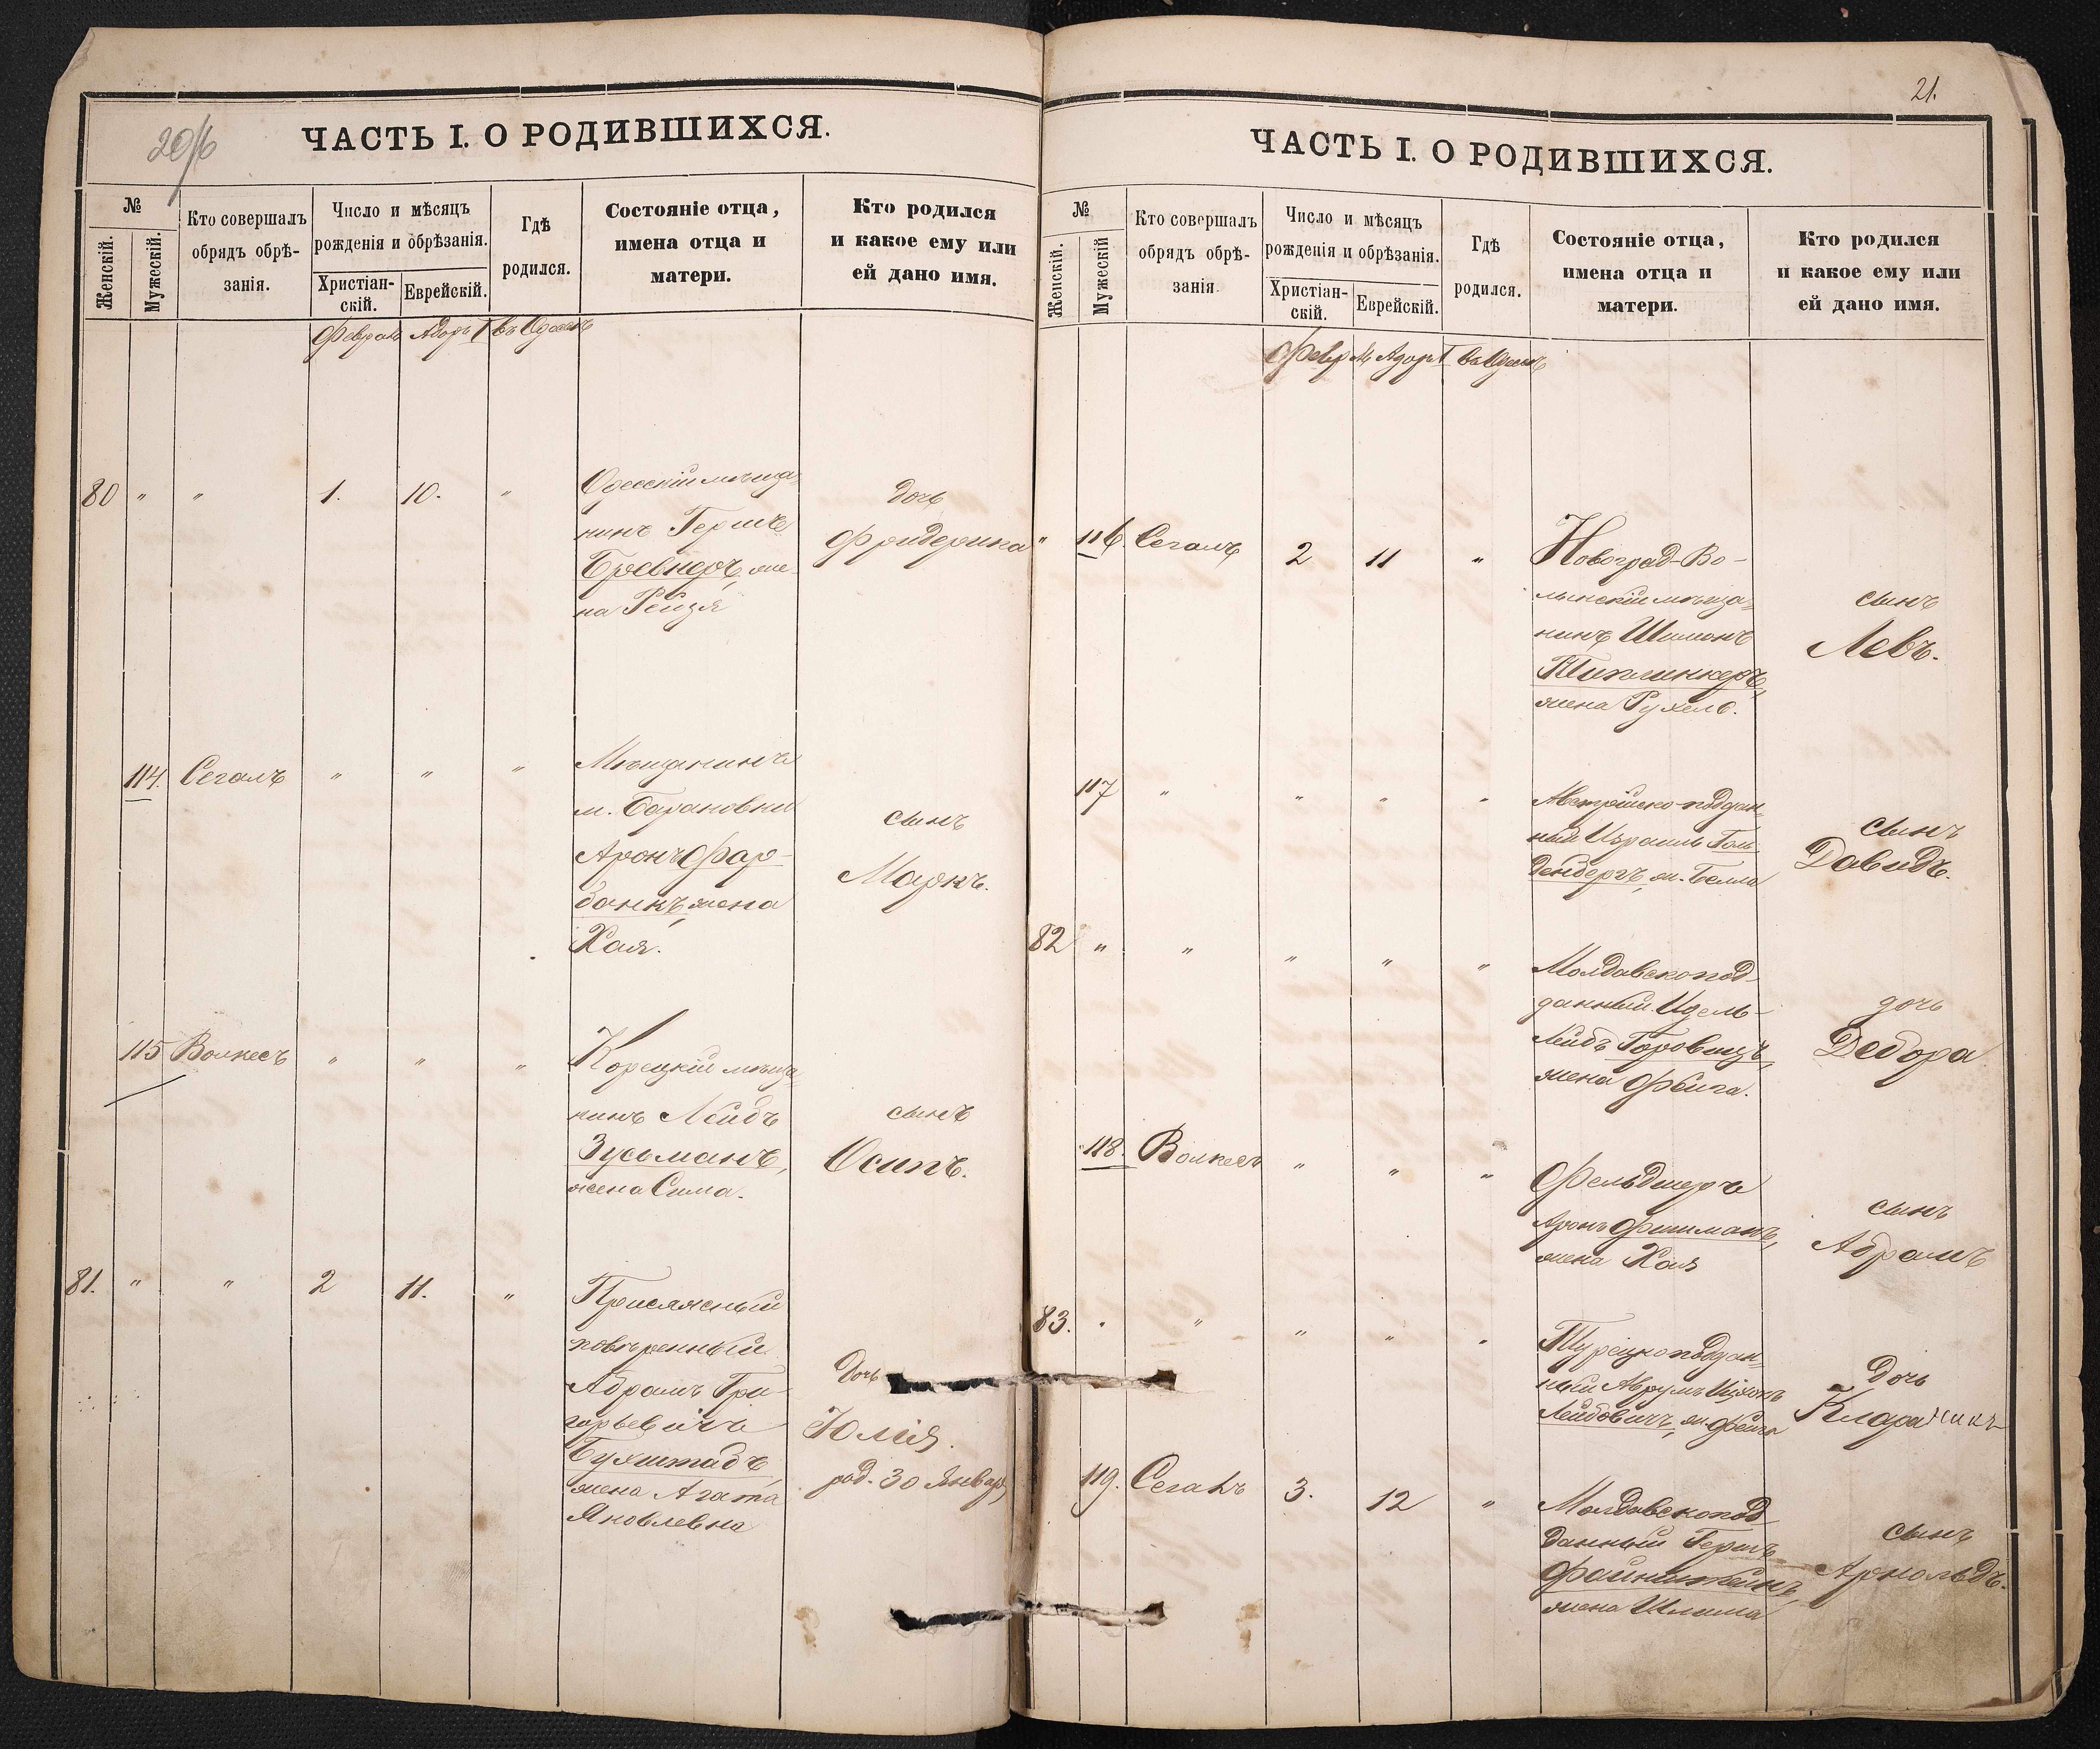 20/б
ЧАСТЬ I. О РОДИВШИХСЯ.
№
Женскій.
Мужескій.
Кто совершалъ
обрядъ обрѣ-
занія.
Число и мѣсяцъ
рожденія и обрѣзанія.
Христіан-
скій.
Еврейскій.
Гдѣ
родился.
Состояніе отца,
имена отца и
матери.
Кто родился
и какое ему или
ей дано имя.
Февраль Адоръ I въ Одессѣ
80 " " 1. 10. "
Одесскій мѣща-
нинъ Гершъ
же-
на Рейзя
дочь
Фридерика
114. Сегалъ " " "
Мѣщанинъ
м. Барановки
Аронъ Фар-
банкъ, жена
Хая.
сынъ
Маркъ.
115 Волкесъ " " "
Корецкій мѣща-
нинъ Лейбъ
Зусьманъ,
жена Сима.
сынъ
Осипъ.
81. " " 2 11. "
Присяжный
повѣренный
Абрамъ Гри-
горьевичъ
Бухштабъ
жена Агата
Яковлевна
дочь
Юлія.
род. 30 Января
21.
ЧАСТЬ I. О РОДИВШИХСЯ.
№
Женскій.
Мужескій
Кто совершалъ
обрядъ обрѣ-
занія
Число и мѣсяцъ
рожденія и обрѣзанія.
Христіан-
скій.
Еврейскій.
Гдѣ
родился.
Состояніе отца,
имена отца и
матери.
Кто родился
и какое ему или
ей дано имя.
Февр Адоръ I въ Одессѣ
" 116. Сегалъ 2 11 "
Новоград-Во-
лынскій мѣща-
нинъ Шимонъ
жена Рухель.
сынъ
Левъ.
117 " " " "
Австрійско-поддан-
ный Израиль Голь
денбергъ, ж. Белла
сынъ
Давидъ.
82 " " " " "
Молдавскопод-
данный Идель-
Лейбъ Горовицъ,
жена Фейга.
дочь
Дебора
118. Волкесъ " " "
Фельдшеръ
Аронъ Фишманъ,
жена Хая
сынъ
Абрамъ
83. " " " " "
Турецкоподдан-
ный Аврумъ Ицхокъ
Лейбовичъ, ж. Фейга
дочь
Клара
119. Сегалъ 3. 12 "
Молдавскопод
данный Гершъ
жена Шлима
сынъ
Арнольдъ.